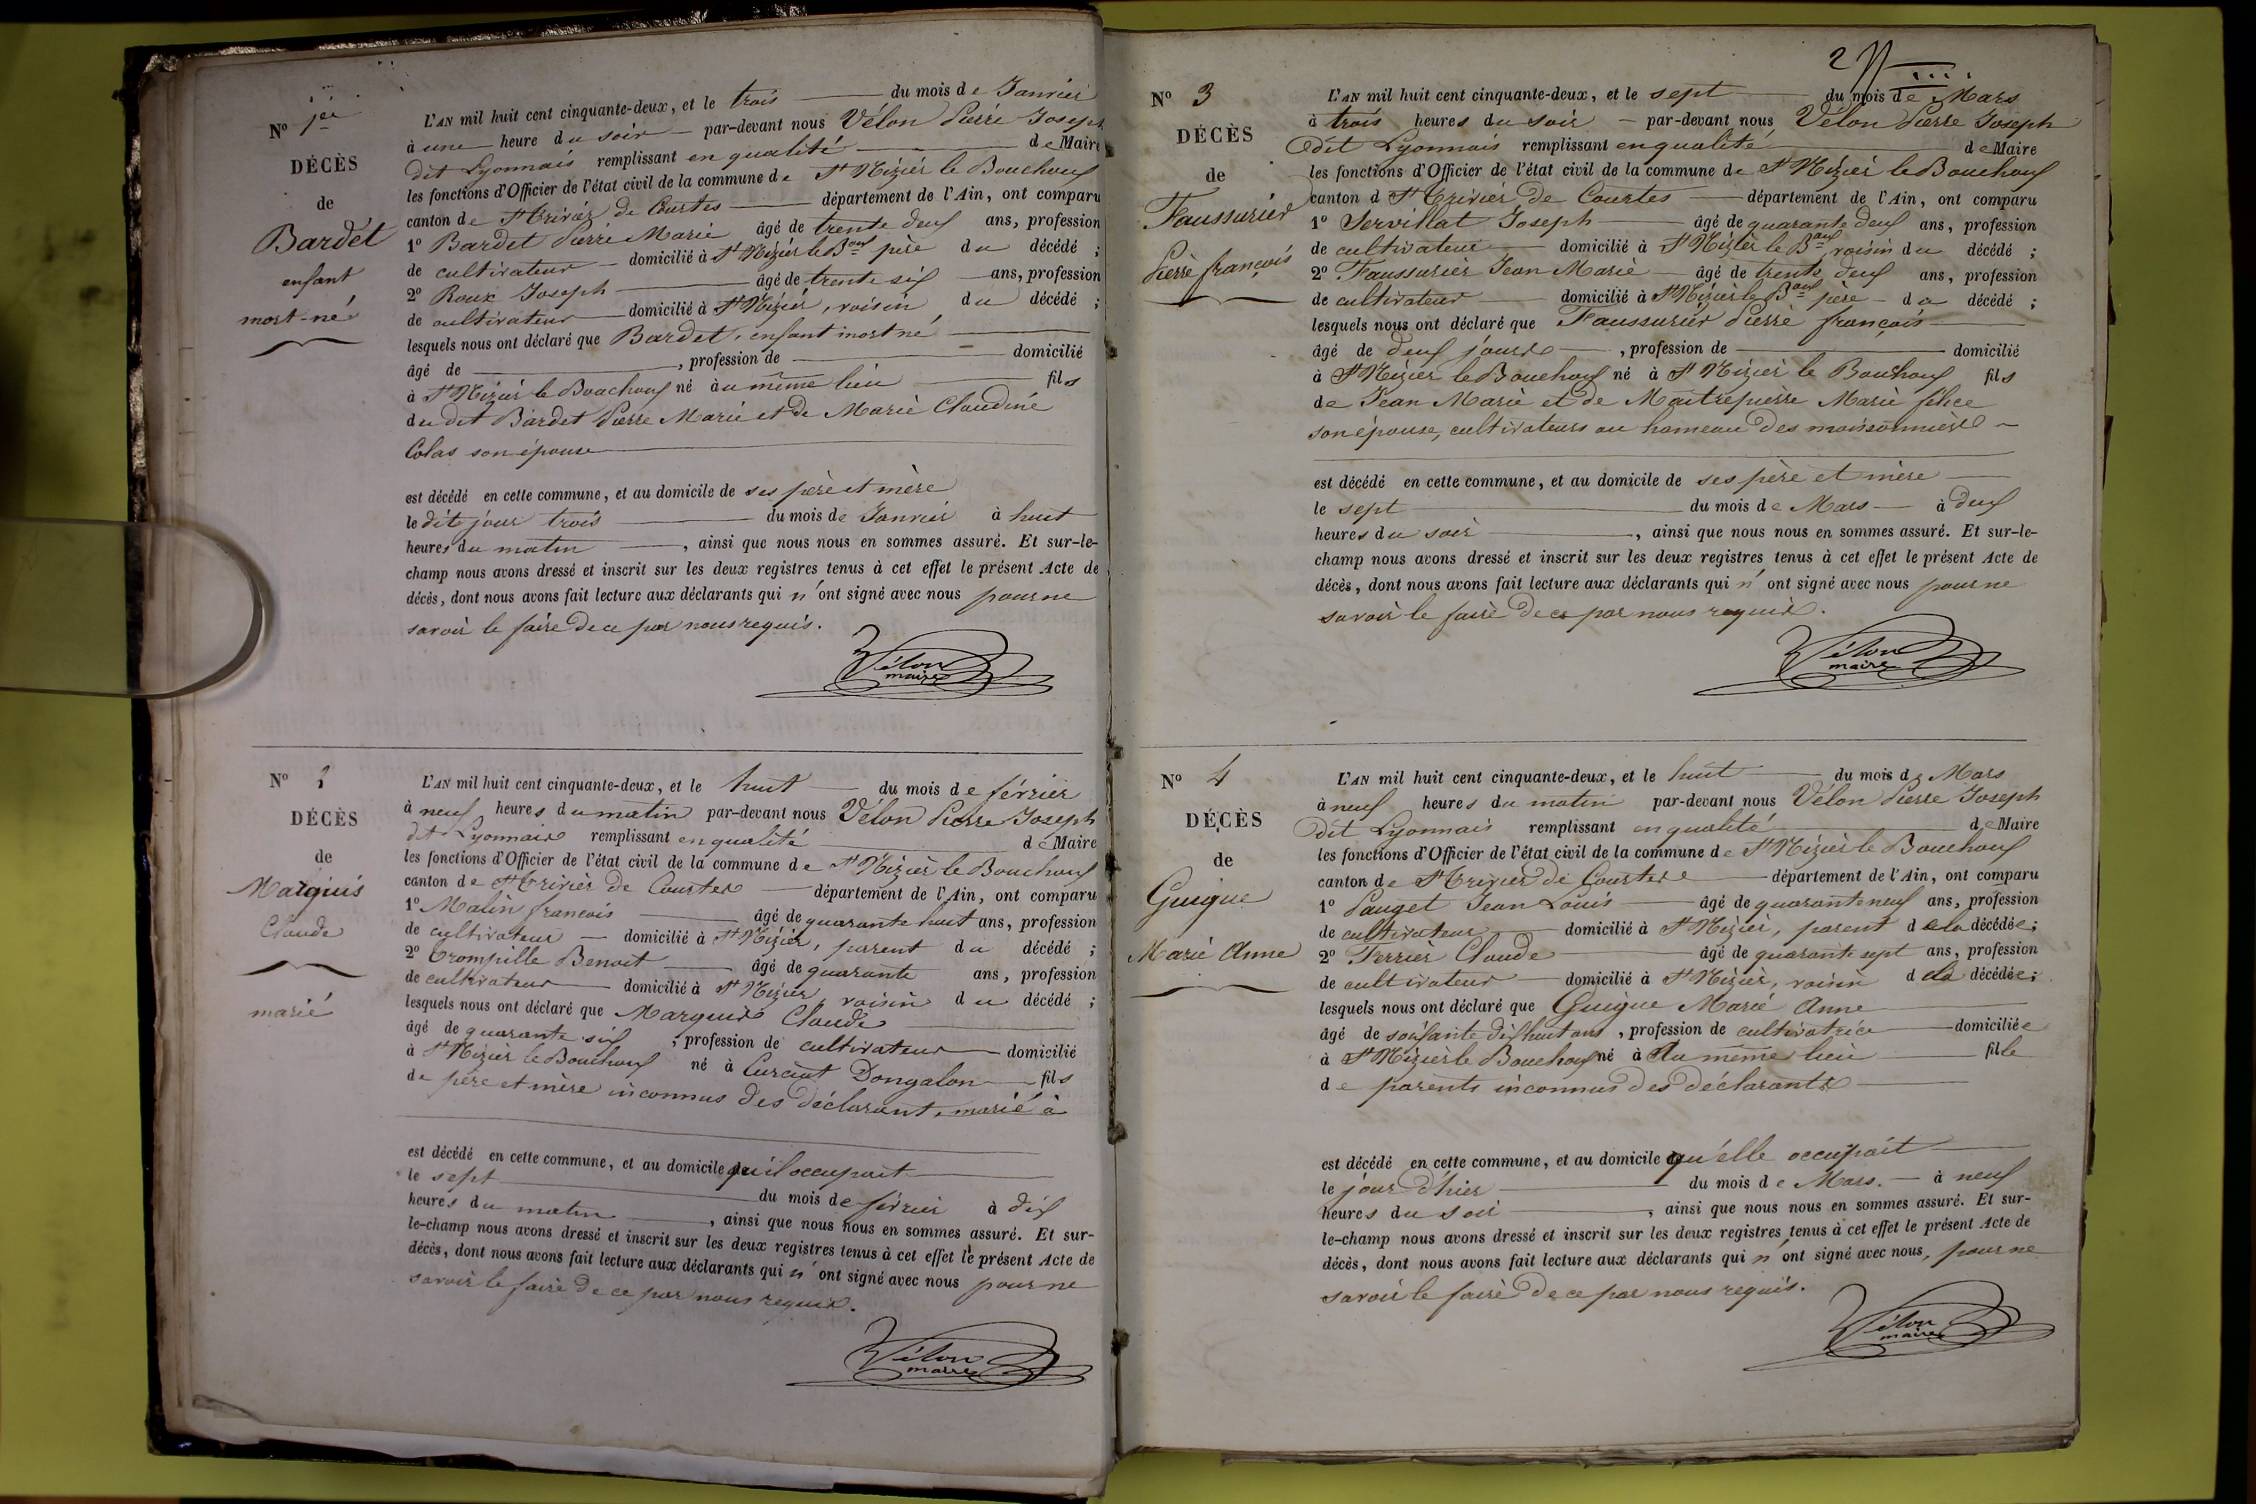 N° 1er
DÉCÈS
de
Bardet
enfant
mort-né
L'AN mil huit cent cinquante-deux, et le trois du mois de Janvier
à une heure du soir par-devant nous Vélon Pierre Joseph
dit Lyonnais remplissant en qualité de Maire
les fonctions d'Officier de l'état civil de la commune de St Nizier le Bouchoux
canton de St Trivier de Courtes département de l'Ain, ont comparu
1° Bardet Pierre Marie âgé de trente deux ans, profession
de cultivateur domicilié à St Nizier le Boux père du décédé ;
2° Roux Joseph âgé de trente six ans, profession
de cultivateur domicilié à St Nizier, voisin du décédé ;
lesquels nous ont déclaré que Bardet, enfant mort né
âgé de , profession de domicilié
à St Nizier le Bouchoux né à au même lieu fils
du dit Bardet Pierre Marie et de Marie Claudine
Colas son épouse
est décédé en cette commune, et au domicile de ses père et mère
le dit jour trois du mois de Janvier à huit
heures du matin , ainsi que nous nous en sommes assuré. Et sur-le-
champ nous avons dressé et inscrit sur les deux registres tenus à cet effet le présent Acte de
décès, dont nous avons fait lecture aux déclarants qui n'ont signé avec nous pour ne
savoir le faire de ce par nous requis.
Vélon
maire
N° 2
DÉCÈS
de
Marguis
Claude
marié
L'AN mil huit cent cinquante-deux, et le huit du mois de février
à neuf heures du matin par-devant nous Vélon Pierre Joseph
dit Lyonnais remplissant en qualité de Maire
les fonctions d'Officier de l'état civil de la commune de St Nizier le Bouchoux
canton de St Trivier de Courtes département de l'Ain, ont comparu
1° Malin francois âgé de quarante huit ans, profession
de cultivateur domicilié à St Nizier, parent du décédé ;
2° Trompille Benoit âgé de quarante ans, profession
de cultivateur domicilié à St Nizier, voisin du décédé ;
lesquels nous ont déclaré que Marguis Claude
âgé de quarante six , profession de cultivateur domicilié
à St Nizier le Bouchoux né à Curciat Dongalon fils
de père et mère inconnus des déclarant, marié à
est décédé en cette commune, et au domicile qu'il occupait
le sept du mois de février à dix
heures du matin , ainsi que nous nous en sommes assuré. Et sur-
le-champ nous avons dressé et inscrit sur les deux registres tenus à cet effet le présent Acte de
décès, dont nous avons fait lecture aux déclarants qui n'ont signé avec nous pour ne
savoir le faire de ce par nous requis.
Vélon
maire
2
N° 3
DÉCÈS
de
Faussurier
Pierre françois
L'AN mil huit cent cinquante-deux, et le sept du mois de Mars
à trois heures du soir par-devant nous Vélon Pierre Joseph
dit Lyonnais remplissant en qualité de Maire
les fonctions d'Officier de l'état civil de la commune de St Nizier le Bouchoux
canton d St Trivier de Courtes département de l'Ain, ont comparu
1° Servillat Joseph âgé de quarante deux ans, profession
de cultivateur domicilié à St Nizier le Boux voisin du décédé ;
2° Faussurier Jean Marie âgé de trente deux ans, profession
de cultivateur domicilié à St Nizier le Boux père du décédé ;
lesquels nous ont déclaré que Faussurier Pierre françois
âgé de deux jours , profession de domicilié
à St Nizier le Bouchoux né à St Nizier le Bouchoux fils
de Jean Marie et de Maitrepierre Marie félice
son épouse, cultivateurs au hameau des moissonnières
est décédé en cette commune, et au domicile de ses père et mère
le sept du mois de Mars à deux
heures du soir , ainsi que nous nous en sommes assuré. Et sur-le-
champ nous avons dressé et inscrit sur les deux registres tenus à cet effet le présent Acte de
décès, dont nous avons fait lecture aux déclarants qui n'ont signé avec nous pour ne
savoir le faire de ce par nous requis.
Vélon
maire
N° 4
DÉCÈS
de
Guigue
Marie Anne
L'AN mil huit cent cinquante-deux, et le huit du mois de Mars
à neuf heures du matin par-devant nous Vélon Pierre Joseph
dit Lyonnais remplissant en qualité de Maire
les fonctions d'Officier de l'état civil de la commune de St Nizier le Bouchoux
canton de St Trivier de Courtes département de l'Ain, ont comparu
1° Pauget Jean Louis âgé de quarante neuf ans, profession
de cultivateur domicilié à St Nizier, parent de la décédée ;
2° Ferrier Claude âgé de quarante sept ans, profession
de cultivateur domicilié à St Nizier, voisin de la décédée ;
lesquels nous ont déclaré que Guigue Marie Anne
âgé de soixante dix huit ans , profession de cultivatrice domiciliée
à St Nizier le Bouchoux né à Au même lieu fille
de parents inconnus des déclarants
est décédé en cette commune, et au domicile qu'elle occupait
le jour d'hier du mois de Mars. à neuf
heures du soir , ainsi que nous nous en sommes assuré. Et sur-
le-champ nous avons dressé et inscrit sur les deux registres tenus à cet effet le présent Acte de
décès, dont nous avons fait lecture aux déclarants qui n'ont signé avec nous, pour ne
savoir le faire de ce par nous requis.
Vélon
maire